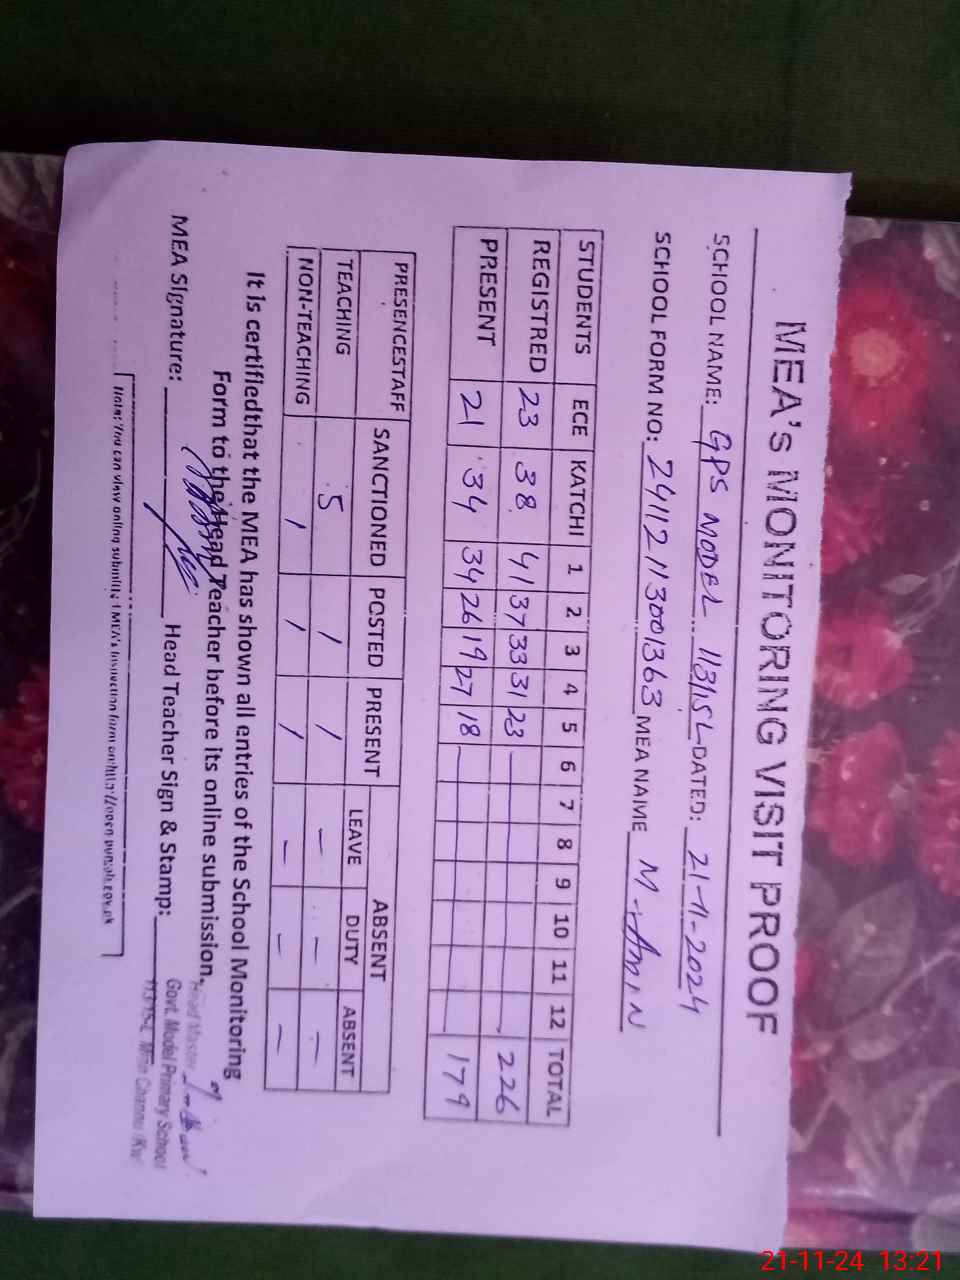 MEA's MONITORING VISIT PROOF
SCHOOL NAME: GPS MODEL 113/15L DATED: 21-11-2024
SCHOOL FORM NO: 24112113001363 MEA NAME M-Amin
STUDENTS ECE KATCHI 1 2 3 4 5 6 7 8 9 10 11 12 TOTAL
REGISTRED 23 38 41 37 33 31 23 226
PRESENT 21 34 34 26 19 27 18 179
PRESENCESTAFF SANCTIONED POSTED PRESENT ABSENT
LEAVE DUTY ABSENT
TEACHING 5 / / — — —
NON-TEACHING / / / — — —
It is certifiedthat the MEA has shown all entries of the School Monitoring
Form to the Head Teacher before its online submission.
MEA Signature: Head Teacher Sign & Stamp:
Head Master
Govt. Model Primary School
113/15-L Mian Channu
Note: You can view online submitted MEA's Inspection form on
21-11-24 13:21